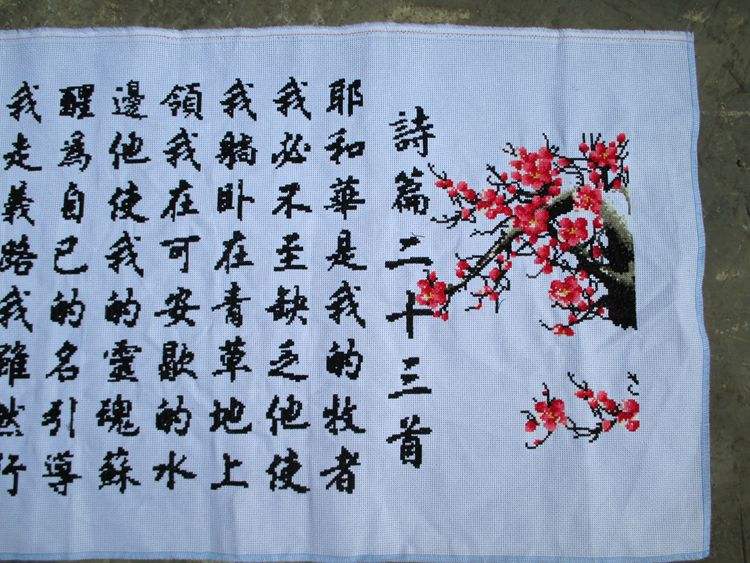 詩篇二十三首
耶和華是我的牧者
我必不至缺乏他使
我躺卧在青草地上
領我在可安歇的水
邊他使我的靈魂蘇
醒為自己的名引導
我走義路我雖然行